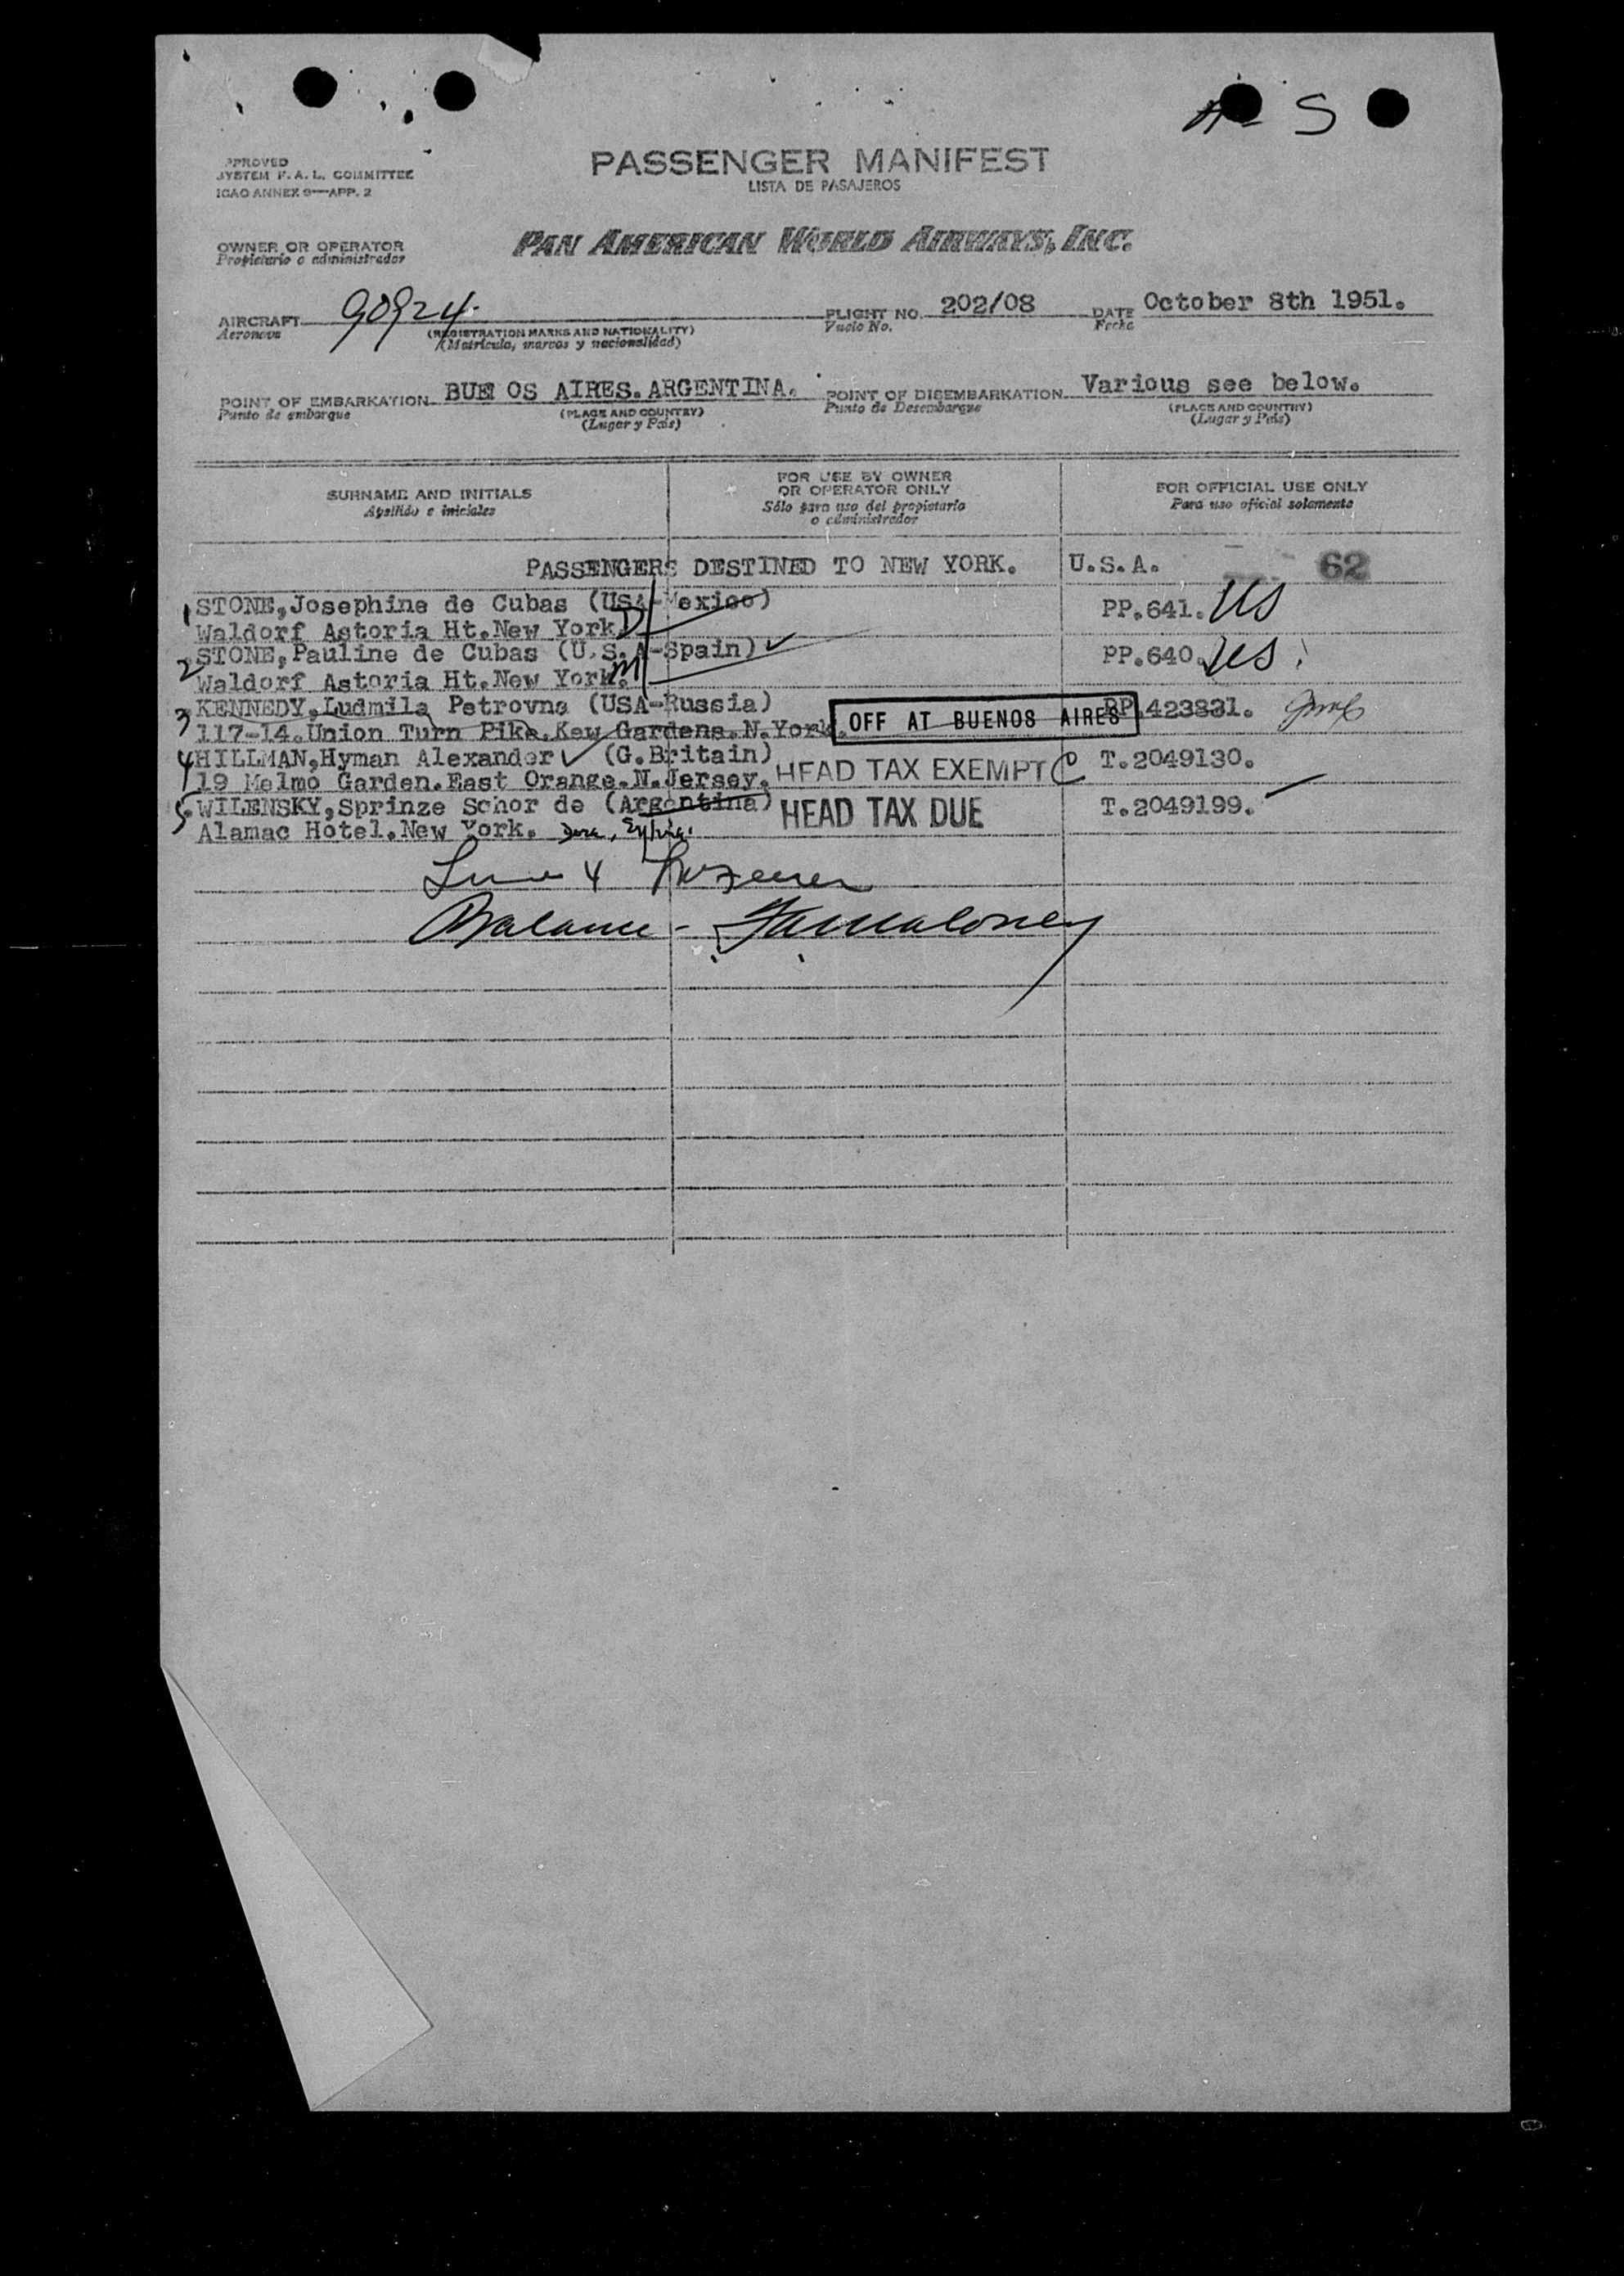 A- S
APPROVED
SYSTEM F. A. L. COMMITTEE
ICAO ANNEX 9—APP. 2
PASSENGER MANIFEST
LISTA DE PASAJEROS
OWNER OR OPERATOR
Propietario o administrador
PAN AMERICAN WORLD AIRWAYS, INC.
AIRCRAFT 90924
Aeronave
(REGISTRATION MARKS AND NATIONALITY)
(Matrícula, marcas y nacionalidad)
FLIGHT NO. 202/08
Vuelo No.
DATE October 8th 1951.
Fecha
POINT OF EMBARKATION BUE OS AIRES.ARGENTINA.
Punto de embarque
(PLACE AND COUNTRY)
(Lugar y País)
POINT OF DISEMBARKATION Various see below.
Punto de Desembarque
(PLACE AND COUNTRY)
(Lugar y País)
SURNAME AND INITIALS
Apellido e iniciales
FOR USE BY OWNER
OR OPERATOR ONLY
Sólo para uso del propietario
o administrador
FOR OFFICIAL USE ONLY
Para uso oficial solamente
PASSENGERS DESTINED TO NEW YORK. U.S.A. 62
1 STONE,Josephine de Cubas (USA-Mexico) PP.641. US
Waldorf Astoria Ht.New York. D
2 STONE,Pauline de Cubas (U.S.A-Spain) PP.640. US
Waldorf Astoria Ht.New York. M
3 KENNEDY,Ludmila Petrovna (USA-Russia) PP.423831.
117-14.Union Turn Pike.Kew Gardens.N.York. OFF AT BUENOS AIRES
4 HILLMAN,Hyman Alexander (G.Britain) T.2049130.
19 Melmo Garden.East Orange.N.Jersey. HEAD TAX EXEMPT C
5. WILENSKY,Sprinze Schor de (Argentina) T.2049199.
HEAD TAX DUE
Alamac Hotel.New York.
Line 4
Balance - Maloney